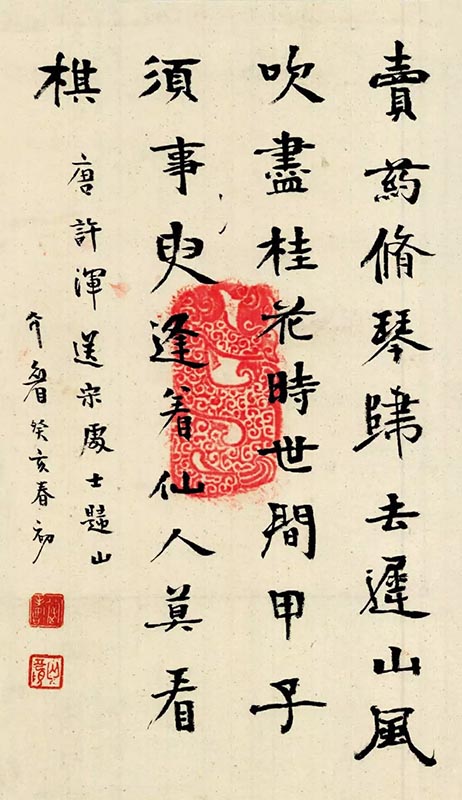 賣葯脩琴歸去遲山風
吹盡桂花時世間甲子
須事臾逢着仙人莫看
棋
唐許渾送宋處士歸山
癸亥春初